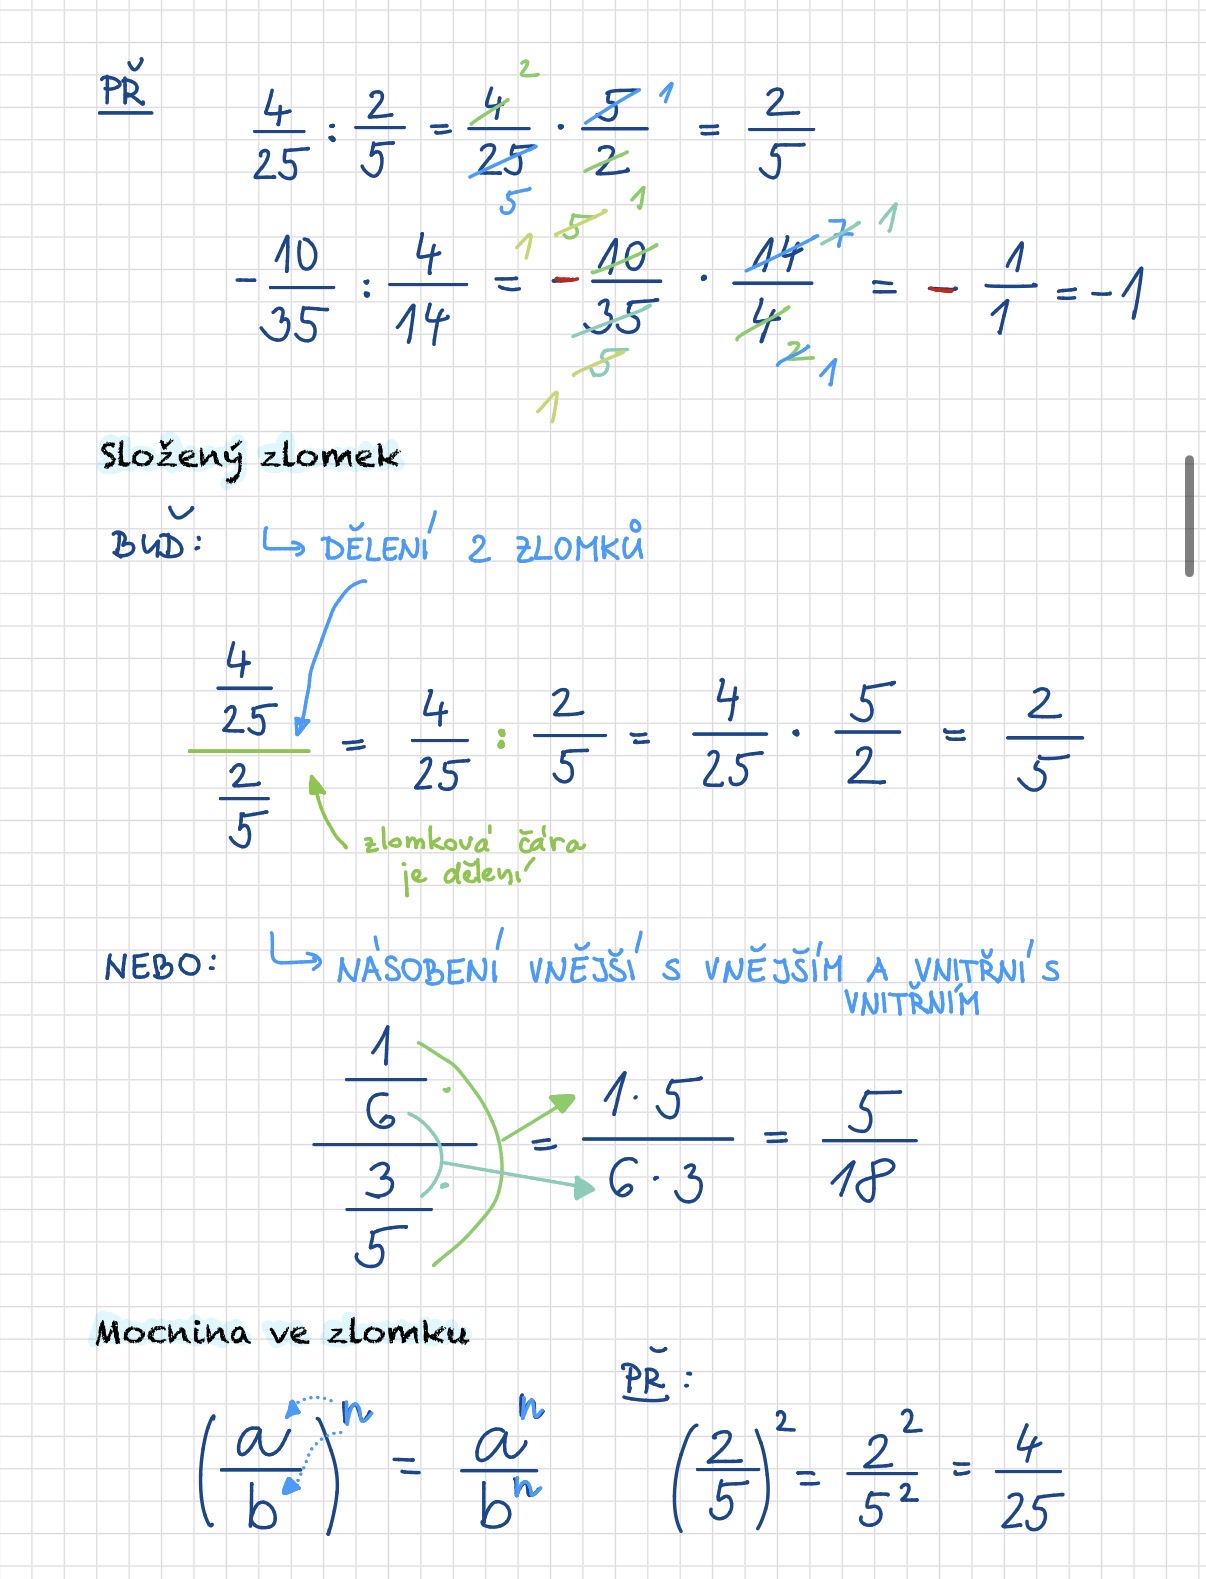 PŘ
4/25 : 2/5 = 4/25 · 5/2 = 2/5
2 1 5
-10/35 : 4/14 = - 10/35 · 14/4 = - 1/1 = -1
1 5 1 7 1
1 5 2 1
Složený zlomek
BUĎ: ↳ DĚLENÍ 2 ZLOMKŮ
(4/25)/(2/5) = 4/25 : 2/5 = 4/25 · 5/2 = 2/5
zlomková čára
je dělení
NEBO: ↳ NÁSOBENÍ VNĚJŠÍ S VNĚJŠÍM A VNITŘNÍ S
VNITŘNÍM
(1/6)/(3/5) = (1·5)/(6·3) = 5/18
Mocnina ve zlomku
PŘ:
(a/b)ⁿ = aⁿ/bⁿ (2/5)² = 2²/5² = 4/25